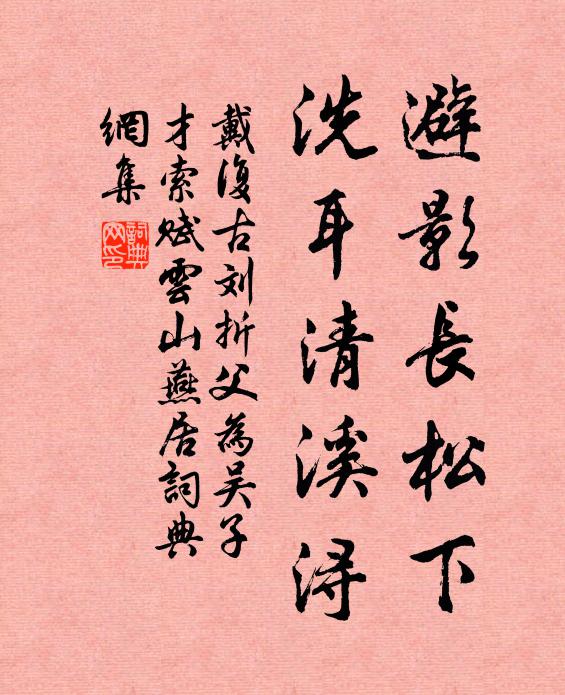 避影長松下
洗耳清溪浔
戴復古刘折父為吴子
才索赋雲山燕居詞典
網集
詞典
网印